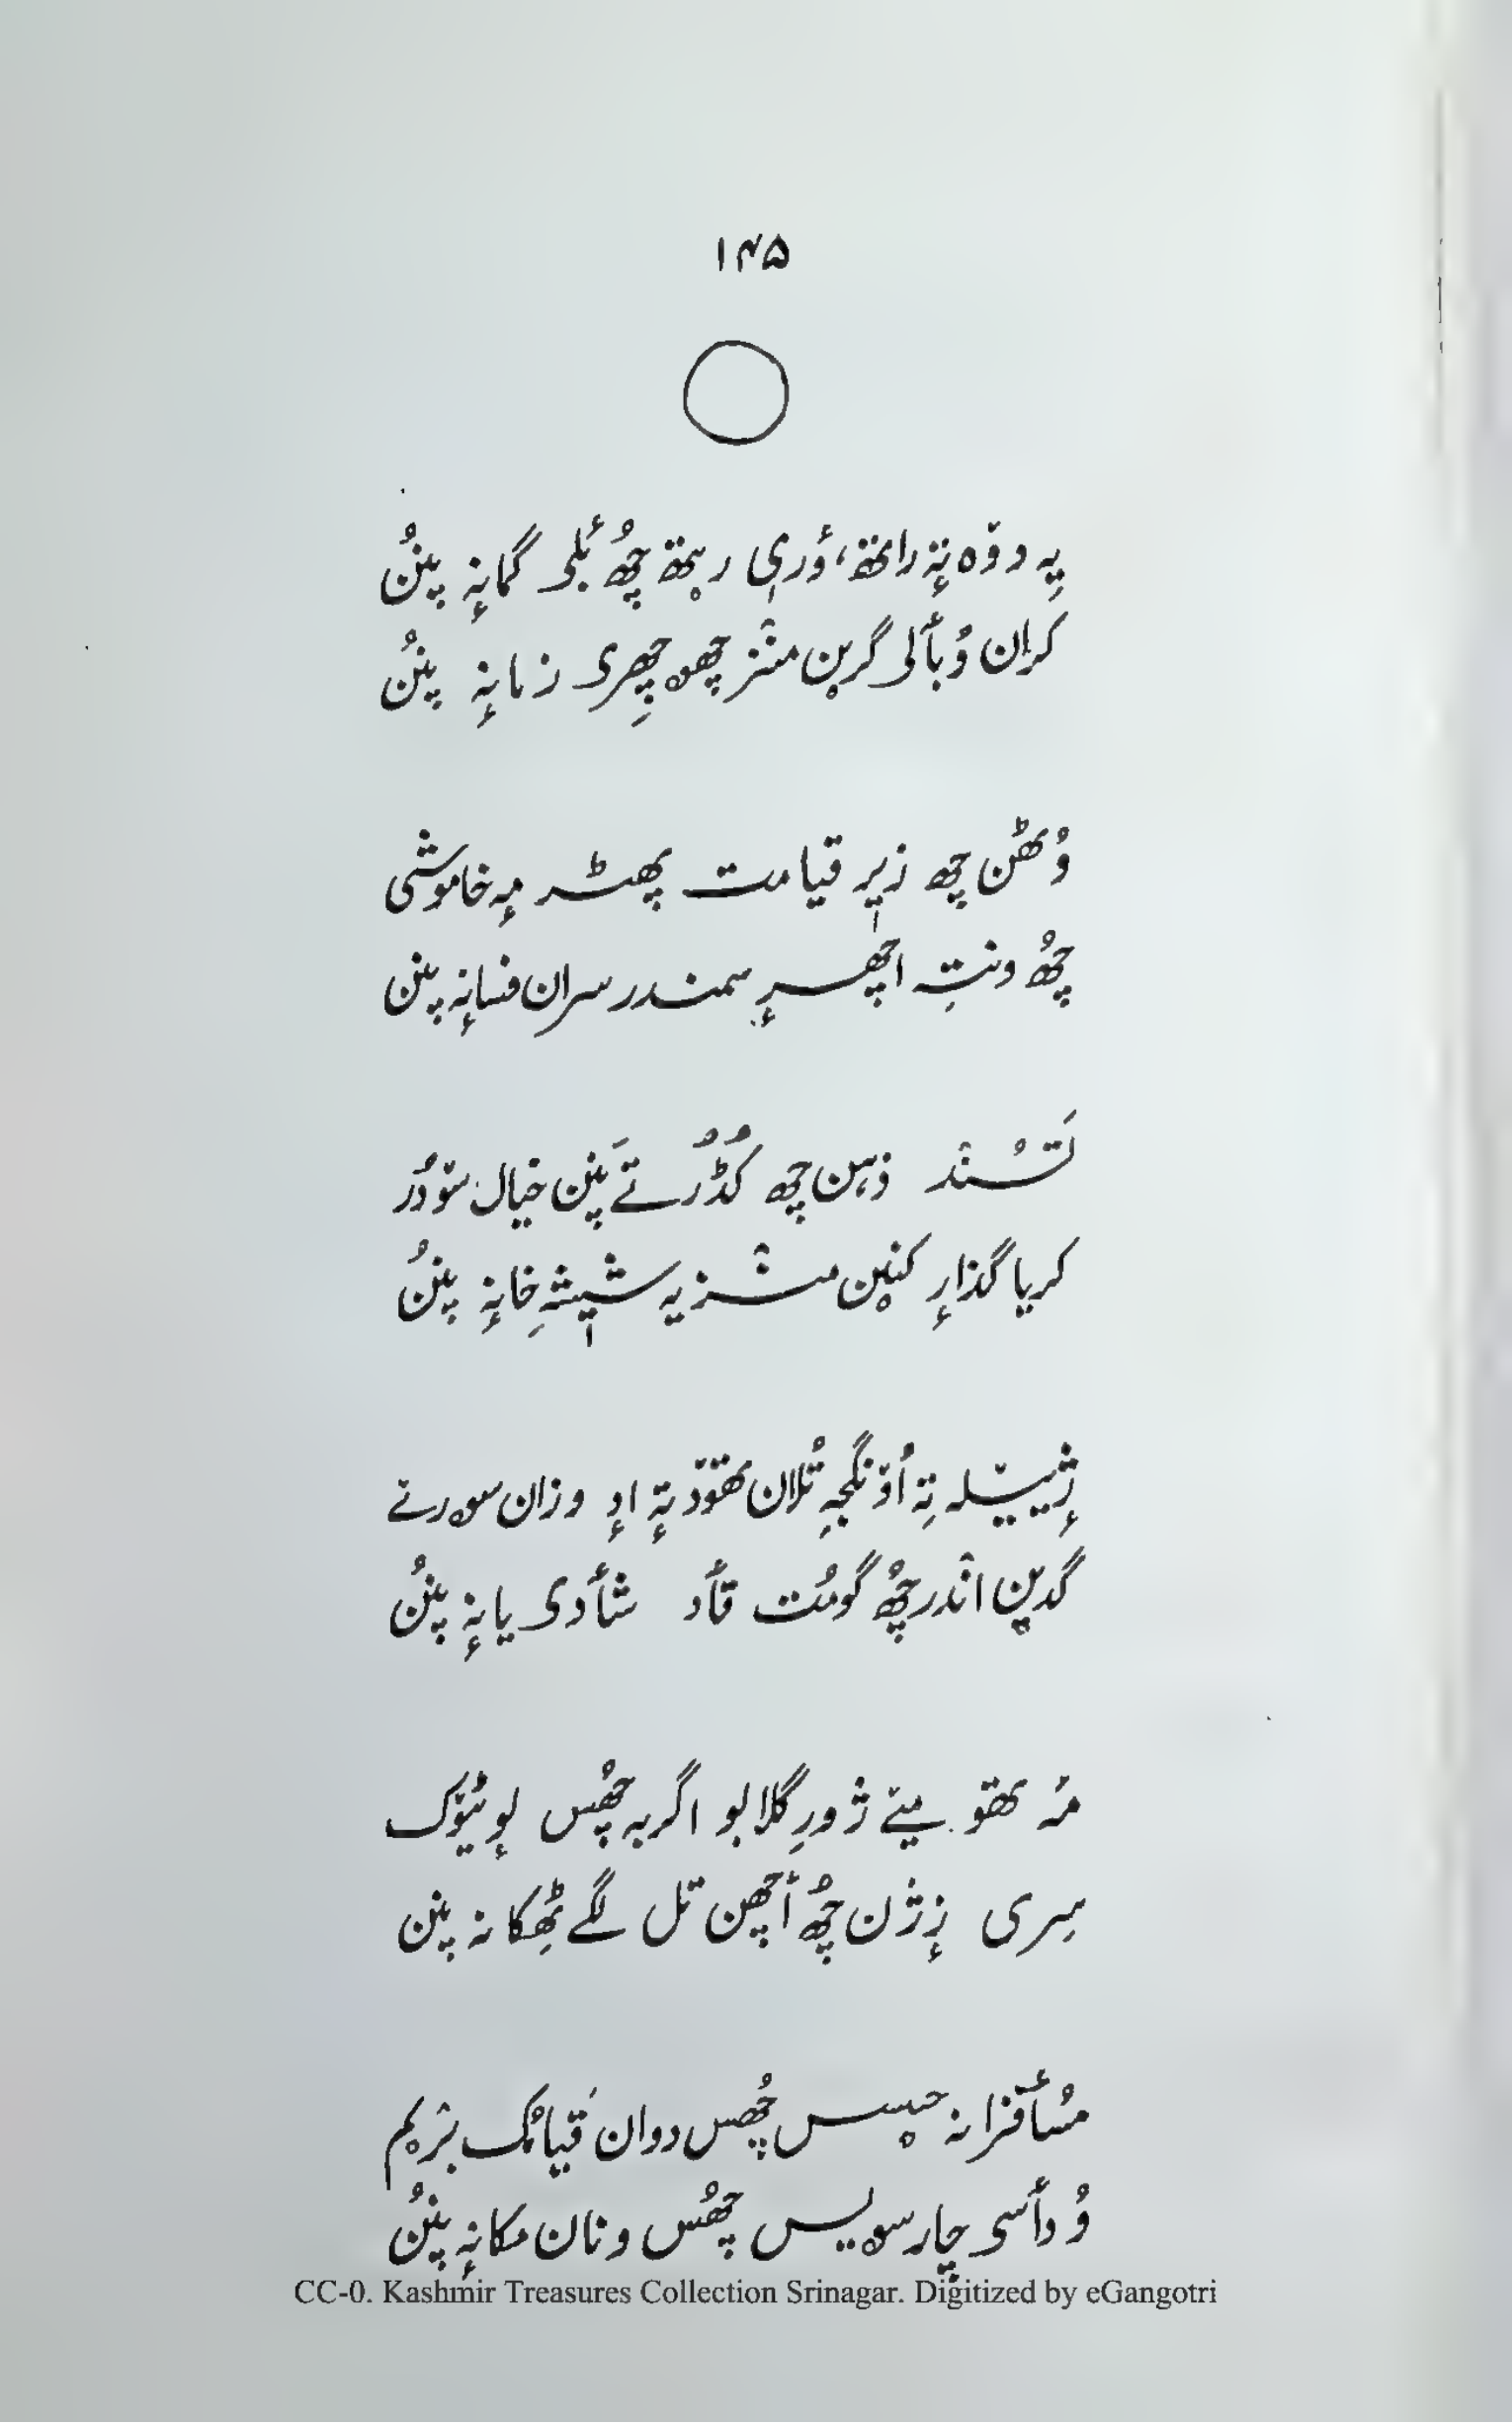 ۱۴۵
یِہ دوٚہ تہٕ راتھ، وُری ریتھ چھُ بٔلی گمانہٕ پنُن
کران وُبألی گرین منٛز چھہِ چھِری زمانہٕ پنُن
وُٹھن چھِ زیرٕ قیامت پھٹر مہٕ خاموشی
چھُ ونتہِ اچھرٕ سمندر سران فسانہٕ پنن
تَسُنٛد ذہن چھِ کُڈُر تے پَنن خیال سۆدُر
کریا گذارٕ کنین منٛز یہ شیشہِ خانہٕ پنُن
ژٕییہٕ تہِ اُونگجہِ تُلان تھوٚد تہٕ ادٕ وزان سورے
گدین انٛدر چھُ گومُت قأد شأدی یانہٕ پنُن
مہ تھو میٚے ژورِ گلابو اگر بہ چھُس لوٕتیوٚک
سِری زٕژن چھُ أچھن تل لگے ٹھِکانہ پنن
مُسأفرانہ حیسس چھُس دوان قَیامُک بٔریم
وُدأسی چار سویس چھُس ونان مکانہٕ پنُن
CC-0. Kashmir Treasures Collection Srinagar. Digitized by eGangotri